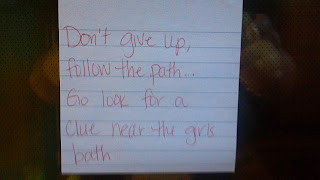 Don't give up,
follow the path...
Go look for a
Clue near the girls
bath